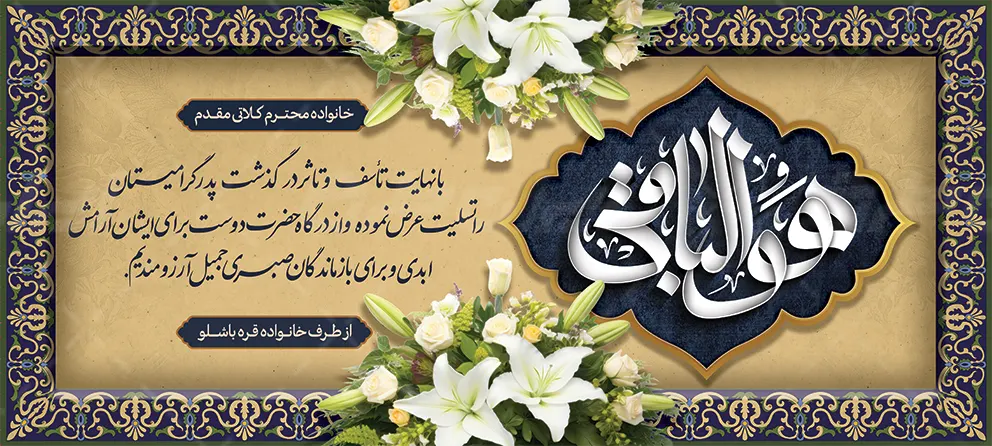 هو الباقی
خانواده محترم کلاتی مقدم
با نهایت تأسف و تاثر در گذشت پدر گرامیستان
را تسلیت عرض نموده و از درگاه حضرت دوست برای ایشان آرامش
ابدی و برای بازماندگان صبری جمیل آرزومندیم.
از طرف خانواده قره باشلو